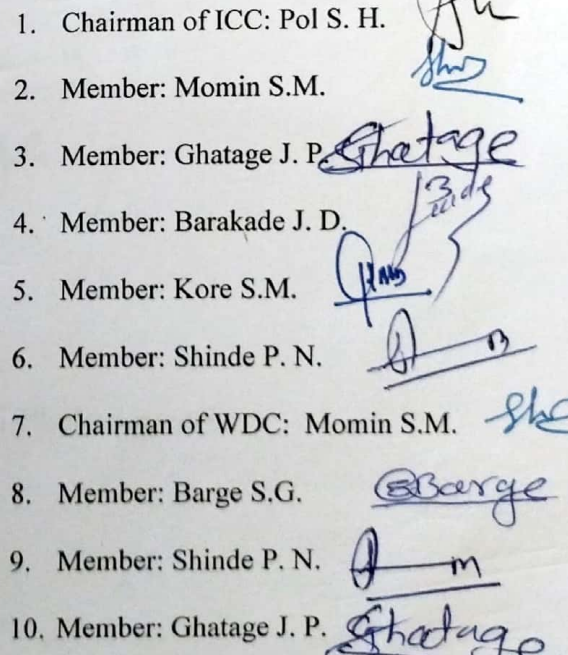 1. Chairman of ICC: Pol S. H.
2. Member: Momin S.M.
3. Member: Ghatage J. P. Ghatage
4. Member: Barakade J. D.
5. Member: Kore S.M.
6. Member: Shinde P. N.
7. Chairman of WDC: Momin S.M.
8. Member: Barge S.G. SBarge
9. Member: Shinde P. N.
10. Member: Ghatage J. P. Ghatage